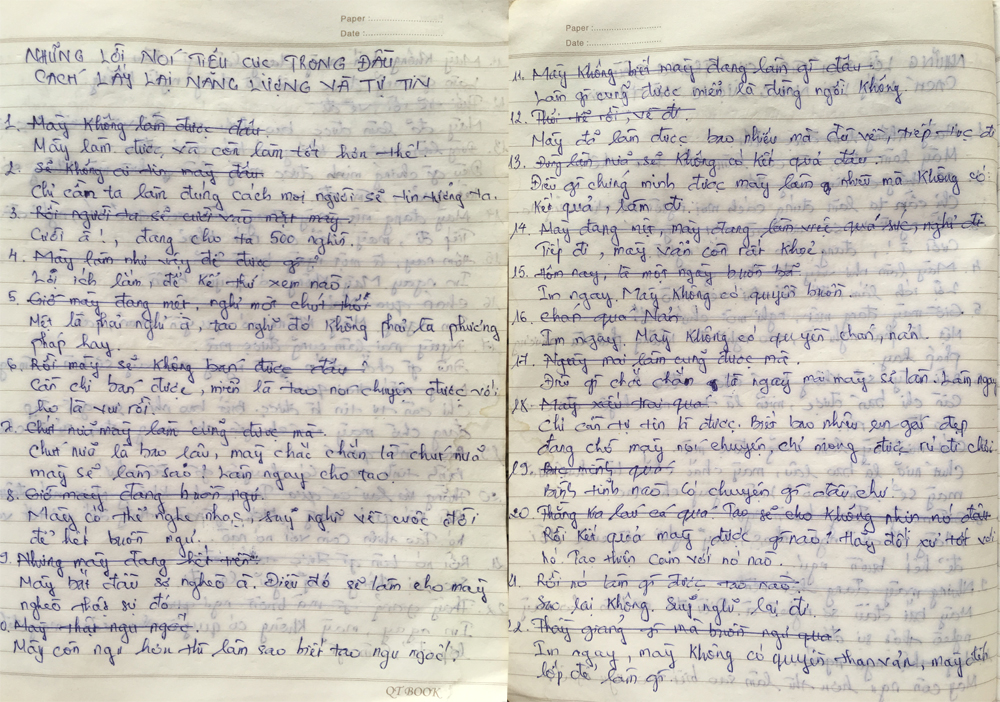 Paper :
Date :
NHỮNG LỜI NÓI TIÊU CỰC TRONG ĐẦU
CÁCH LẤY LẠI NĂNG LƯỢNG VÀ TỰ TIN
1. Mày không làm được đâu
Mày làm được, và còn làm tốt hơn thế.
2. Sẽ không có tin mày đâu
Chỉ cần ta làm đúng cách mọi người sẽ tin tưởng ta.
3. Rồi người ta sẽ cười vào mặt mày.
Cười à!, đang cho ta 500 nghìn.
4. Mày làm như vậy để được gì?
Lợi ích lắm, để kể thử xem nào.
5. Giờ mày đang mệt, nghỉ một chút thôi
Mệt là phải nghỉ à, tao nghĩ đó không phải là phương
pháp hay.
6. Rồi mày sẽ không bán được đâu!
Cần chi bán được, miễn là tao nói chuyện được với
họ là vui rồi.
7. Chút nữa mày làm cũng được mà.
Chút nữa là bao lâu, mày chắc chắn là chút nữa
mày sẽ làm sao? Làm ngay cho tao.
8. Giờ mày đang buồn ngủ.
Mày có thể nghe nhạc, suy nghĩ về cuộc đời
để hết buồn ngủ.
9. Nhưng mày đang hết tiền.
Mày bắt đầu sợ nghèo à. Điều đó sẽ làm cho mày
nghèo thật sự đó
0. Mày thật ngu ngốc.
Mày còn ngu hơn thì làm sao biết tao ngu ngốc.
QT BOOK
Paper :
Date :
11. Mày không biết mày đang làm gì đâu
Làm gì cũng được miễn là đừng ngồi không.
12. Thôi trễ rồi, về đi.
Mày đã làm được bao nhiêu mà đòi về, tiếp tục đi
13. Đừng làm nữa, sẽ không có kết quả đâu.
Điều gì chứng minh được mày làm nhiều mà không có
kết quả, làm đi.
14. Mày đang mệt, mày đang làm việc quá sức, nghỉ đi
Tiếp đi, mày vẫn còn rất khoẻ.
15. Hôm nay, là một ngày buồn bã
Im ngay. Mày không có quyền buồn.
16. Chán quá. Nản
Im ngay. Mày không có quyền chán, nản.
17. Ngày mai làm cũng được mà.
Điều gì chắc chắn là ngày mai mày sẽ làm. Làm ngay
18. Mày xấu trai quá
Chỉ cần tự tin là được. Biết bao nhiêu em gái đẹp
đang chờ mày nói chuyện, chỉ mong được rủ đi chơi
19. Bực mình quá.
Bình tĩnh nào có chuyện gì đâu chứ
20. Thằng kia láu cá quá. Tao sẽ cho không nhìn nó đâu
Rồi kết quả mày được gì nào? Hãy đối xử tốt với
nó. Tao thiện cảm với nó nào.
1. Rồi nó làm gì được tao nào.
Sao lại không. Suy nghĩ lại đi.
2. Thầy giảng gì mà buồn ngủ quá.
Im ngay, mày không có quyền than vãn, mày đến
lớp để làm gì